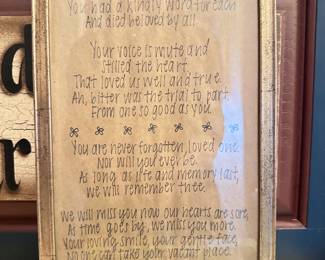 You had a kindly word for each
And died beloved by all.
Your voice is mute and
Stilled the heart.
That loved us well and true.
Ah, bitter was the trial to part,
From one so good as you.
You are never forgotten, loved one
Nor will you ever be.
As long as life and memory last,
we will remember thee.
We will miss you now our hearts are sore,
As time goes by, we miss you more.
Your loving smile, your gentle face,
No one can take your vacant place.
d
r